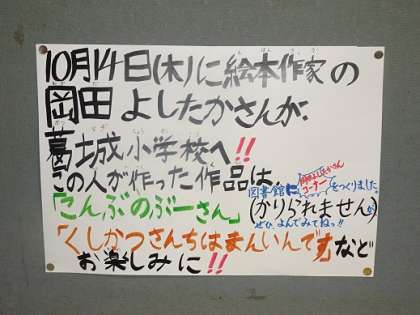 10月14日(木)に絵本作家の
岡田よしたかさんが、
葛城小学校へ!!
この人が作った作品は、
図書館に
コーナー
をつくりました。
「こんぶのぶーさん」
(かりられませんが
ぜひ、よんでみてねっ!!
「くしかつさんちはまんいんです」など
お楽しみに!!